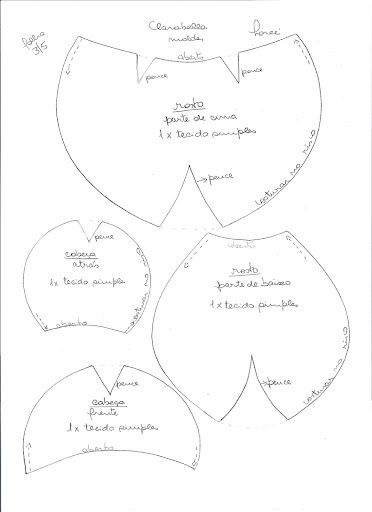 folha
3/5
Clarabella
moldes
aberto
pence
pence
rosto
parte de cima
1 x tecido simples
pence
costurar no risco
cabeça
atrás
1x tecido simples
pence
aberto
costurar no risco
aberto
rosto
parte de baixo
1x tecido simples
pence
costurar no risco
pence
cabeça
frente
1 x tecido simples
aberto